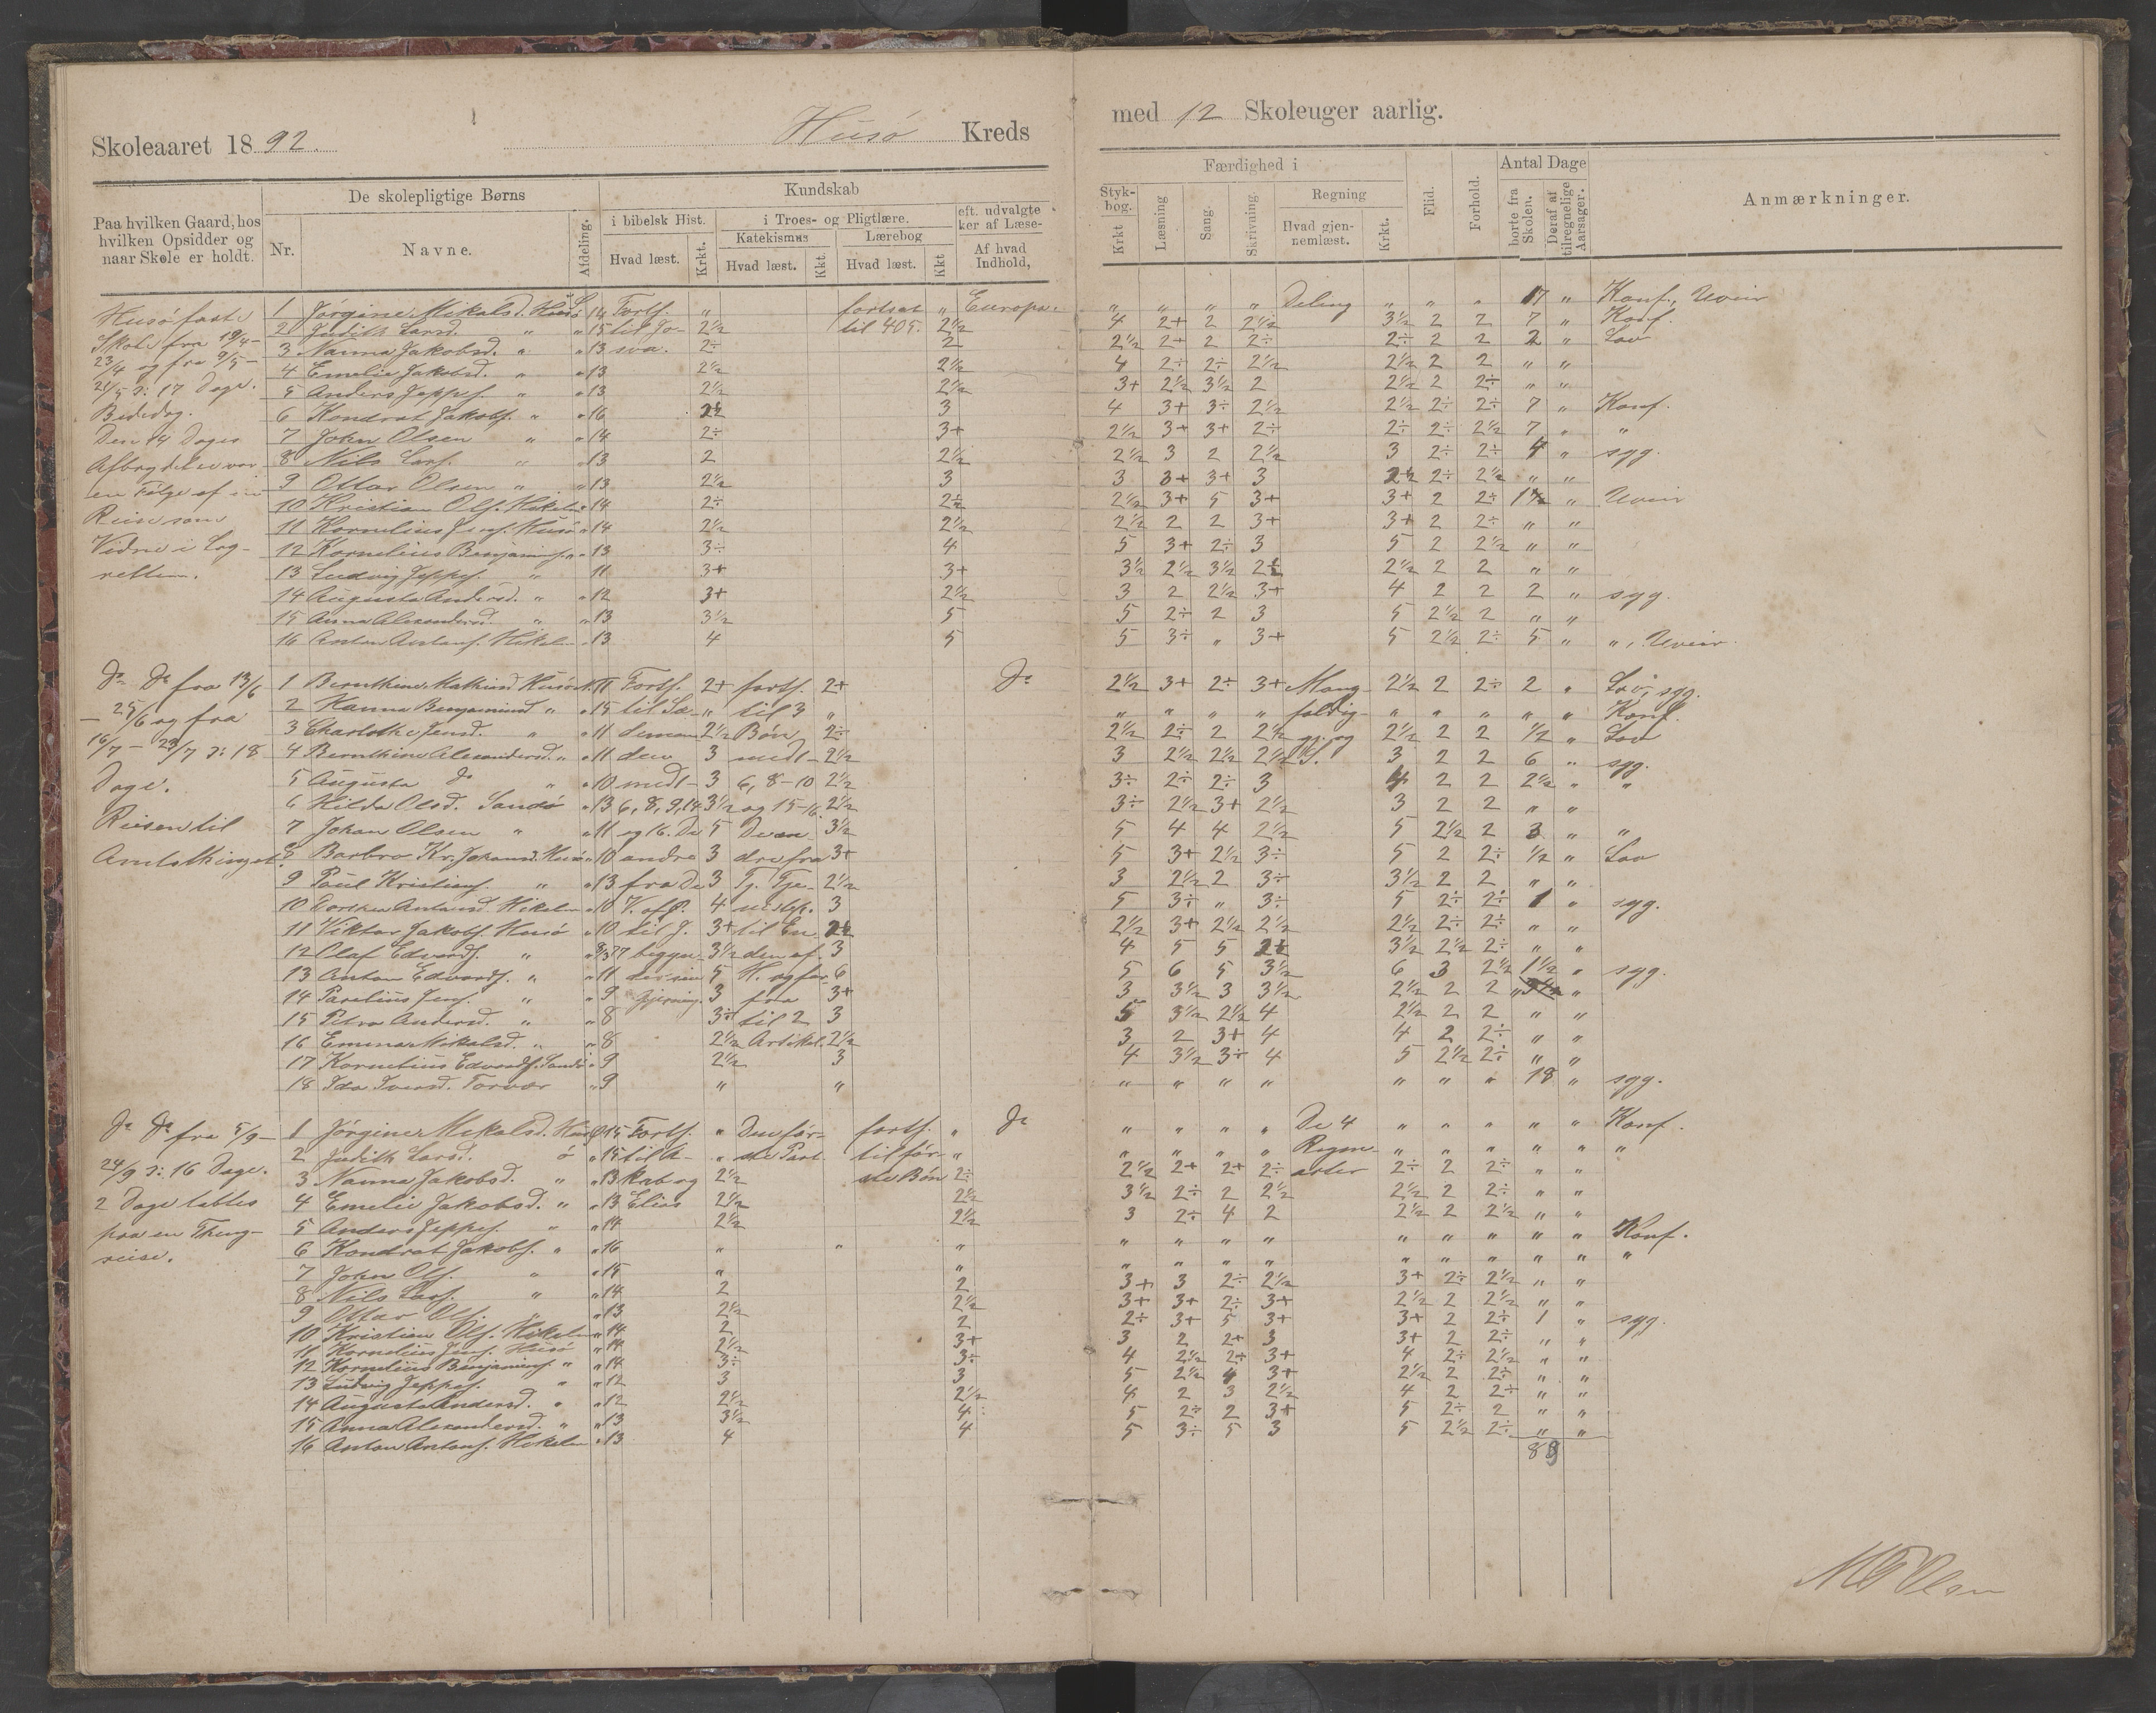 Skoleaaret 1892. Husö Kreds
med 12 Skoleuger aarlig.
Paa hvilken Gaard, hos hvilken Opsidder og naar Skole er holdt.
De skolepligtige Børns
Nr. Navne. Afdeling.
Kundskab
i bibelsk Hist. Hvad læst. Krkt.
i Troes- og Pligtlære.
Katekismus Hvad læst. Kkt.
Lærebog Hvad læst. Kkt
eft. udvalgte ker af Læse-
Af hvad Indhold,
Færdighed i
Styk-bog. Krkt Læsning Sang. Skrivning.
Regning Hvad gjen-nemlæst. Krkt.
Flid. Forhold.
Antal Dage
borte fra Skolen. Deraf af tilregnelige Aarsager.
Anmærkninger.
Husö faste
Skole fra 19/4-
23/4 og fra 9/5-
21/5 ɔ: 17 Dage.
Bededag.
Den 14 Dages
Afbrydelse var
en Følge af en
Reise som
Vidne i Lag-
retten.
1 Jörgine Mikalsd. Husö " 14 Forts. " fortsat " Europa. " " " " Deling " " " 17 " Konf., Uveir
2 Judith Larsd. " " 15 til Jo- 2½ til 405. 2½ 4 2+ 2 2½ 3½ 2 2 7 " Konf.
3 Nanna Jakobsd. " " 13 sva. 2÷ 2 2½ 2+ 2 2÷ 2÷ 2 2 2 " Lov
4 Emelie Jakobsd. " " 13 2½ 2½ 4 2÷ 2÷ 2½ 2½ 2 2 " "
5 Anders Jeppes. " " 13 2½ 2½ 3+ 2½ 3½ 2 2½ 2 2÷ " "
6 Kondrat Jakobs. " " 16 2½ 3 4 3+ 3÷ 2½ 2½ 2÷ 2÷ 7 " Konf.
7 John Olsen " " 14 2÷ 3+ 2½ 3+ 3+ 2÷ 2÷ 2÷ 2½ 7 " "
8 Nils Lars. " " 13 2 2½ 2½ 3 2 2½ 3 2÷ 2÷ 4 " syg.
9 Ottar Olsen " " 13 2½ 3 3 3+ 3+ 3 2½ 2÷ 2½ " "
10 Kristian Ols. Hikelm " 14 2÷ 2½ 2½ 3+ 5 3+ 3+ 2 2÷ 1½ " Uveir
11 Kornelius Jens. Husö " 14 2½ 2½ 2½ 2 2 3+ 3+ 2 2÷ " "
12 Kornelius Benjamins. " " 13 3÷ 4 5 3+ 2÷ 3 5 2 2½ " "
13 Ludvig Jeppes. " 11 3+ 3+ 3½ 2½ 3½ 2½ 2½ 2 2 " "
14 Augusta Andersd. " " 12 3+ 2½ 3 2 2½ 3+ 4 2 2 2 " syg.
15 Anna Alexandersd. " " 13 3½ 5 5 2÷ 2 3 5 2½ 2 " "
16 Anton Antons. Hikelm " 13 4 5 5 3÷ " 3+ 5 2½ 2÷ 5 " ", Uveir.
Do Do fra 13/6
- 25/6 og fra
16/7 - 23/7 ɔ: 18
Dage.
Reisen til
Amtsthinget.
1 Bernthine Mathiasd Husö " 11 Forts. 2+ forts. 2+ Do 2½ 3+ 2÷ 3+ Mang- 2½ 2 2÷ 2 " Lov, syg.
2 Hanna Benjaminsd " " 15 til Sa- " til 3 " " " " " foldig- " " " " " Konf.
3 Charlothe Jensd. " " 11 lemon 2½ Bön 2÷ 2½ 2÷ 2 2½ gj. og 2½ 2 2 ½ " Lov
4 Bernthine Alexandersd. " " 11 den 3 medt- 2½ 3 2½ 2½ 2½ S. 3 2 2 6 " syg.
5 Augusta Do " " 10 medt- 3 6, 8-10 2½ 3÷ 2÷ 2÷ 3 4 2 2 2½ " "
6 Hilda Olsd. Sandö " 13 6, 8, 9, 14 3½ og 15-16. 2½ 3÷ 2½ 3+ 2½ 3 2 2 " "
7 Johan Olsen " " 11 og 16. De 5 De an 3½ 5 4 4 2½ 5 2½ 2 3 " "
8 Barbro Kr. Johansd. Husö " 10 andre 3 dre fra 3+ 5 3+ 2½ 3÷ 5 2 2÷ ½ " Lov
9 Paul Kristians. " " 13 fra De 3 Tj. Tje- 2½ 3 2½ 2 3÷ 3½ 2 2 " "
10 Dorthea Antonsd. Hikelm " 10 4 3 5 3÷ " 3÷ 5 2÷ 2÷ 1 " syg.
11 Viktor Jakobs. Husö " 10 til J. 3+ til En- 2½ 2½ 3+ 2½ 2½ 2½ 2÷ 2÷ " "
12 Olaf Edvards. " begyn- 3½ den af 3 4 5 5 2½ 3½ 2½ 2÷ " "
13 Anton Edvards. " " 11 5 H. og for- 6 5 6 5 3½ 6 3 2½ 1½ " syg.
14 Parelius Jens. " " 9 gjerning. 3 fra 3+ 3 3½ 3 3½ 2½ 2 2 " "
15 Petra Andersd. " " 8 3÷ til 2 3 5 3½ 2½ 4 2½ 2 2 " "
16 Emma Mikalsd. " " 8 2½ Artikel. 2½ 3 2 3+ 4 4 2 2÷ " "
17 Kornelius Edvards. Sandö " 9 2½ 3 4 3½ 3÷ 4 5 2½ 2÷ " "
18 Ida Iversd. Torvær " 9 " " " " " " " " " 18 " syg.
Do Do fra 5/9-
24/9 ɔ: 16 Dage.
2 Dage tabtes
paa en Thing-
reise.
1 Jörgine Mikalsd. Husö 15 Forts. " Den för- forts. " Do " " " " De 4 " " " " " Konf.
2 Judith Larsd. ö " 15 til A- " ste Part. til för- " " " " " Regne- " " " " " "
3 Nanna Jakobsd. " " 13 kab og 2½ ste Bön 2÷ 2½ 2+ 2+ 2÷ arter 2÷ 2 2÷ " "
4 Emelie Jakobsd. " " 13 Elias 2½ 2½ 3½ 2÷ 2 2½ 2½ 2 2÷ " "
5 Anders Jeppes. " " 14 2½ 2½ 3 2÷ 4 2 2½ 2 2½ " "
6 Kondrat Jakobs. " " 16 " " " " " " " " " " " " Konf.
7 John Ols. " " 15 " " " " " " " " " " " "
8 Nils Lars. " " 14 2 2 3+ 3 2÷ 2½ 3+ 2÷ 2½ " "
9 Ottar Ols. " " 13 2½ 2½ 3+ 3+ 2÷ 3+ 2½ 2 2½ " "
10 Kristian Ols. Hikelm " 14 2 2 2÷ 3+ 5 3+ 3+ 2 2÷ 1 " syg.
11 Kornelius Jens. Husö " 14 2½ 3+ 3 2 2+ 3 3+ 2 2÷ " "
12 Kornelius Benjamins. " " 14 3÷ 3÷ 4 2½ 2÷ 3+ 4 2÷ 2½ " "
13 Ludvig Jeppes. " " 12 3 3 5 2½ 4 3+ 2½ 2 2÷ " "
14 Augusta Andersd. " " 12 2½ 2½ 4 2 3 2½ 4 2 2÷ " "
15 Anna Alexandersd. " " 13 3½ 4 5 2÷ 2 3+ 5 2÷ 2 " "
16 Anton Antons. Hikelm " 13 4 4 5 3÷ 5 3 5 2½ 2÷ " "
89